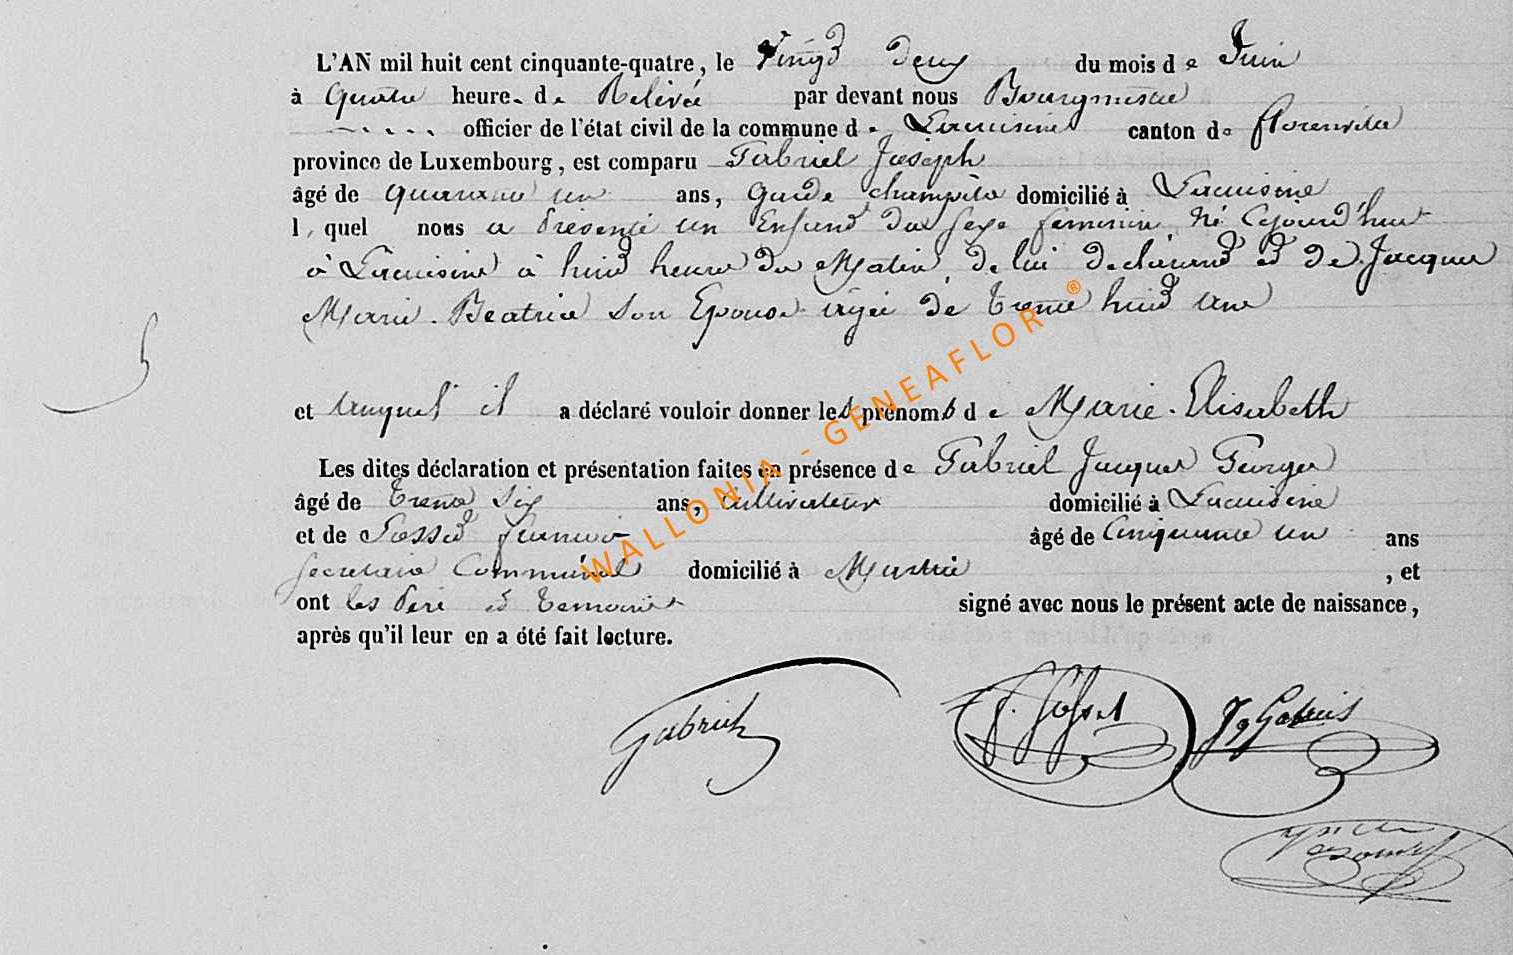 L'AN mil huit cent cinquante-quatre, le vingt deux du mois de Juin
à quatre heures de Relevée par devant nous Bourgmestre
officier de l'état civil de la commune de Lacuisine canton de florenville
province de Luxembourg, est comparu Gabriel Joseph
âgé de quarante un ans, garde champêtre domicilié à Lacuisine
l, quel nous a présenté un Enfant du sexe feminin, Né Cejourd'hui
à Lacuisine à huit heures du Matin, de lui declarant et de Jacques
Marie-Beatrice son Epouse agée de trente huit ans
et auquel il a déclaré vouloir donner les prénoms de Marie-Elisabeth
Les dites déclaration et présentation faites en présence de Gabriel Jacques Georges
âgé de trente six ans, cultivateur domicilié à Lacuisine
et de Gosset âgé de Cinquante un ans
secretaire Communal domicilié à , et
ont les Père et temoins signé avec nous le présent acte de naissance,
après qu'il leur en a été fait lecture.
Gabriel
J. Gosset
WALLONIA - GENEAFLOR ®